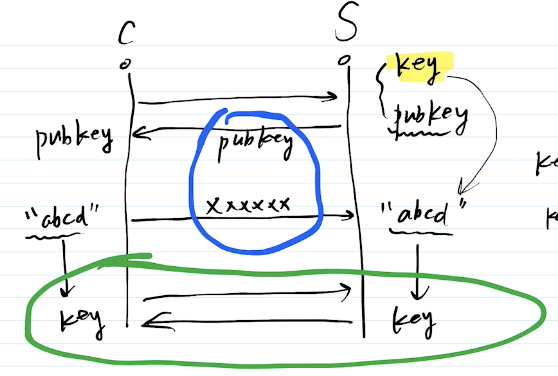 C S
key
pubkey
pubkey
pubkey
xxxxxx
"abcd"
"abcd"
key
key